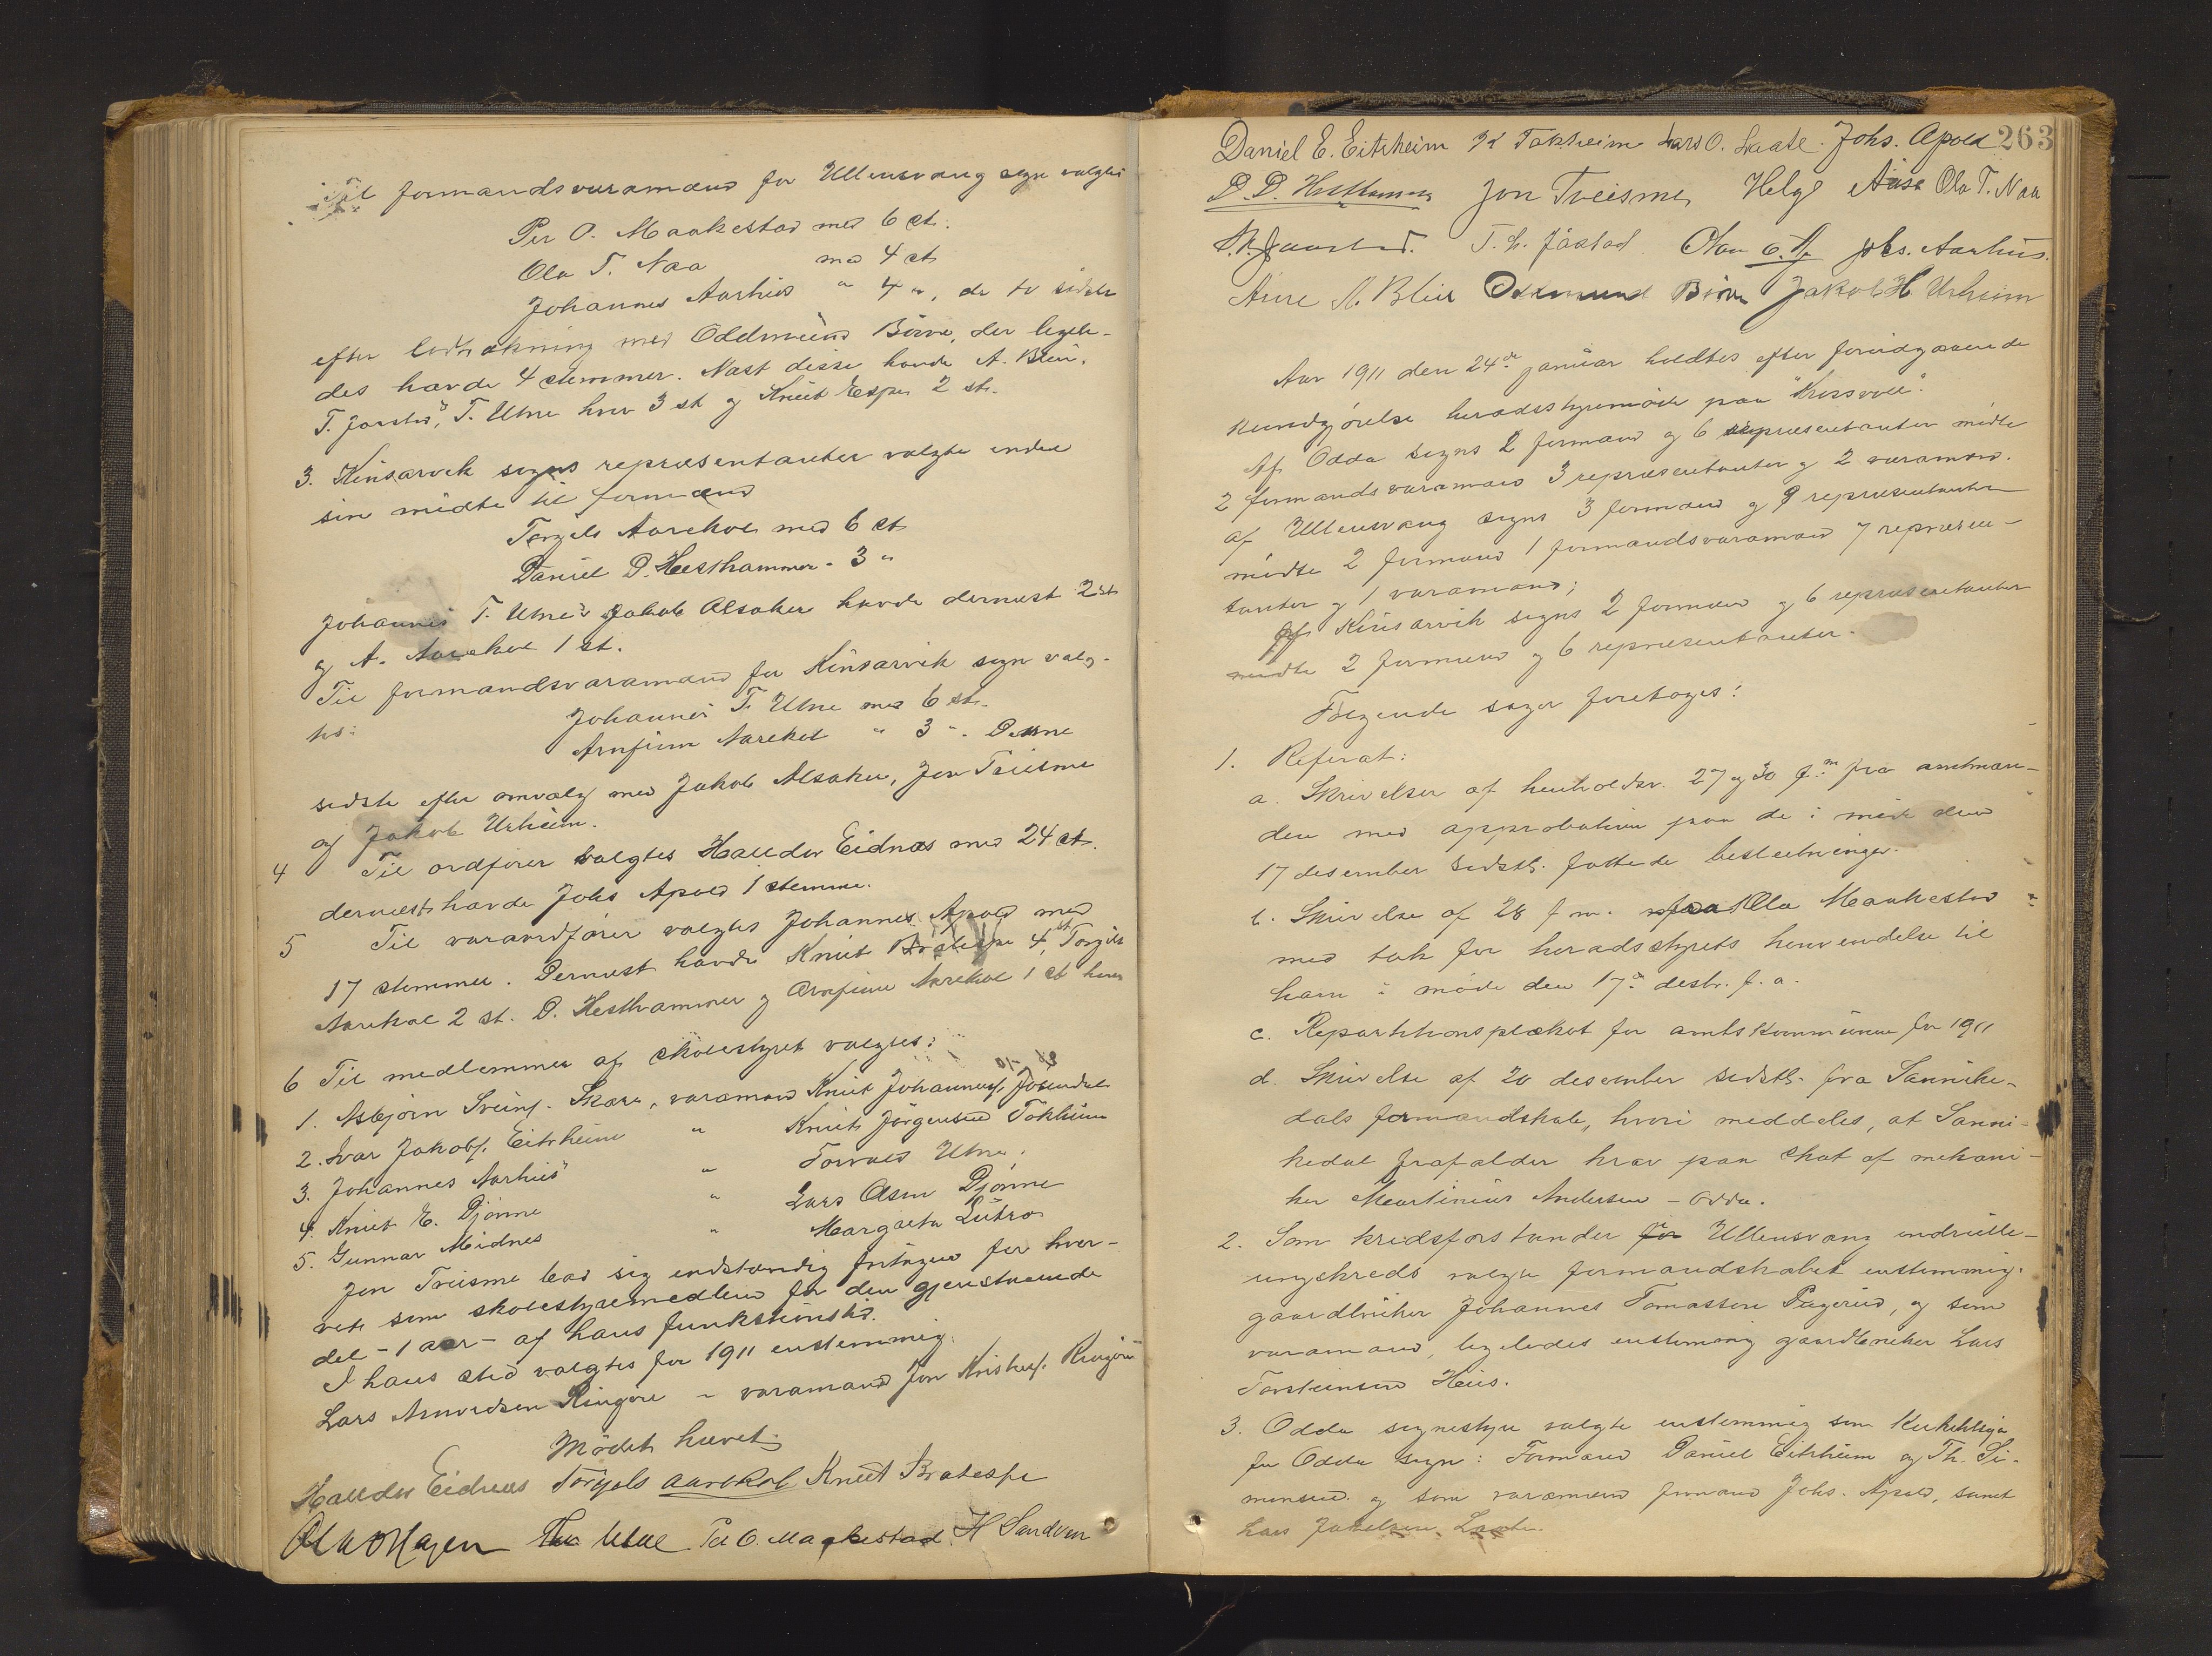 Til formandsvaramænd for Ullensvang sogn valgtes
Per O. Maakestad med 6 st.
Ola T. Naa med 4 st
Johannes Aarhus " 4 ", de to sidste
efter lodtrækning med Oddmund Börve, der ligele-
des havde 4 stemmer. Næst disse havde A. Bleie,
T. Jaastad, T. Utne hver 3 st og Knut Espe 2 st.
3. Kinsarvik sogns repræsentanter valgte inden
sin midte til formænd
Torgils Aarekol med 6 st
Daniel D. Hesthammer - 3 "
Johannes T. Utne & Jakob Alsaker havde dernæst 2 st
og A. Aarekol 1 st.
Til formandsvaramænd for Kinsarvik sogn valg-
tes:
Johannes T. Utne med 6 st.
Arnfinn Aarekol " 3 ". Denne
sidste efter omvalg med Jakob Alsaker, Jon Treisme
og Jakob Urheim.
4 Til ordförer valgtes Halldor Eidnes med 24 st.
dernæst havde Johs Apold 1 stemme.
5 Til varaordförer valgtes Johannes Apold med
17 stemmer. Dernæst havde Knut Bratespe 4 st, Torgils
Aarekol 2 st. D. Hesthammer og Arnfinn Aarekol 1 st hver
6 Til medlemmer af skolestyret valgtes:
1. Asbjörn Sveins. Skare, varamand Knut Johannes. Jösendal
2. Ivar Jakobs. Eitrheim " Knut Jörgensen Tokheim
3. Johannes Aarhus " Torvald Utne.
4. Knut E. Djönne " Lars Olsen Djönne
5. Gunnar Midnes " Margreta Lutro
Jon Treisme bad sig indstændig fritagen for hver-
vet som skolestyremedlem for den gjenstaaende
del - 1 aar - af hans funktionstid.
I hans sted valgtes for 1911 enstemmig
Lars Amundsen Ringöie - varamand Jon Kristens. Ringöi
Mödet hævet.
Halldor Eidnes Torgils Aarekol Knut Bratespe
Olav O Hagen Utne Per O. Maakestad. H Sandven
263
Daniel E. Eitrheim K Tokheim Lars O. Laate. Johs. Apold
D. D. Hesthammer Jon Treisme, Helge Aase Ola T. Naa
Jaastad. T. L. Jåstad Olav Johs. Aarhus.
Aure A. Bleie Oddmund Börve Jakob H Urheim
Aar 1911 den 24de januar holdtes efter forudgaaende
kundgjörelse heradsstyremöde paa "Krossvoll".
Af Odda sogns 2 formænd og 6 repræsentanter mödte
2 formandsvaramænd 3 repræsentanter og 2 varamænd.
af Ullensvang sogns 3 formænd og 9 repræsentanter
mödte 2 formænd 1 formandsvaramand 7 repræsen-
tanter og 1 varamand;
Af Kinsarvik sogns 2 formænd og 6 repræsentanter
mödte 2 formænd og 6 repræsentanter.
Fölgende sager foretoges:
1. Referat:
a. Skrivelser af henholdsv. 27 og 30 f. m. fra amtman-
den med approbation paa de i möde den
17 desember sidstl. fattede beslutninger.
b. Skrivelse af 28 f m. fra Ola Maakestad
med tak for heradsstyrets henvendelse til
ham i möde den 17de desbr. f. a.
c. Repartitionsplakat for amtskommunen for 1911
d. Skrivelse af 20 desember sidstl. fra Sannike-
dals formandskab, hvori meddeles, at Sanni-
kedal frafalder krav paa skat af mekani-
ker Martinius Andersen - Odda.
2. Som kredsforstander for Ullensvang indrulle-
ringskreds valgte formandskabet enstemmig
gaardbruker Johannes Tomassen Pugerud, og som
varamand, ligeledes enstemmig gaardbruker Lars
Torsteinsen Heus.
3. Odda sognestyre valgte enstemmig som
for Odda sogn: Formand Daniel Eitrheim og Th. Si-
monsen og som varamænd formand Johs. Apold, samt
Lars Jakobsen